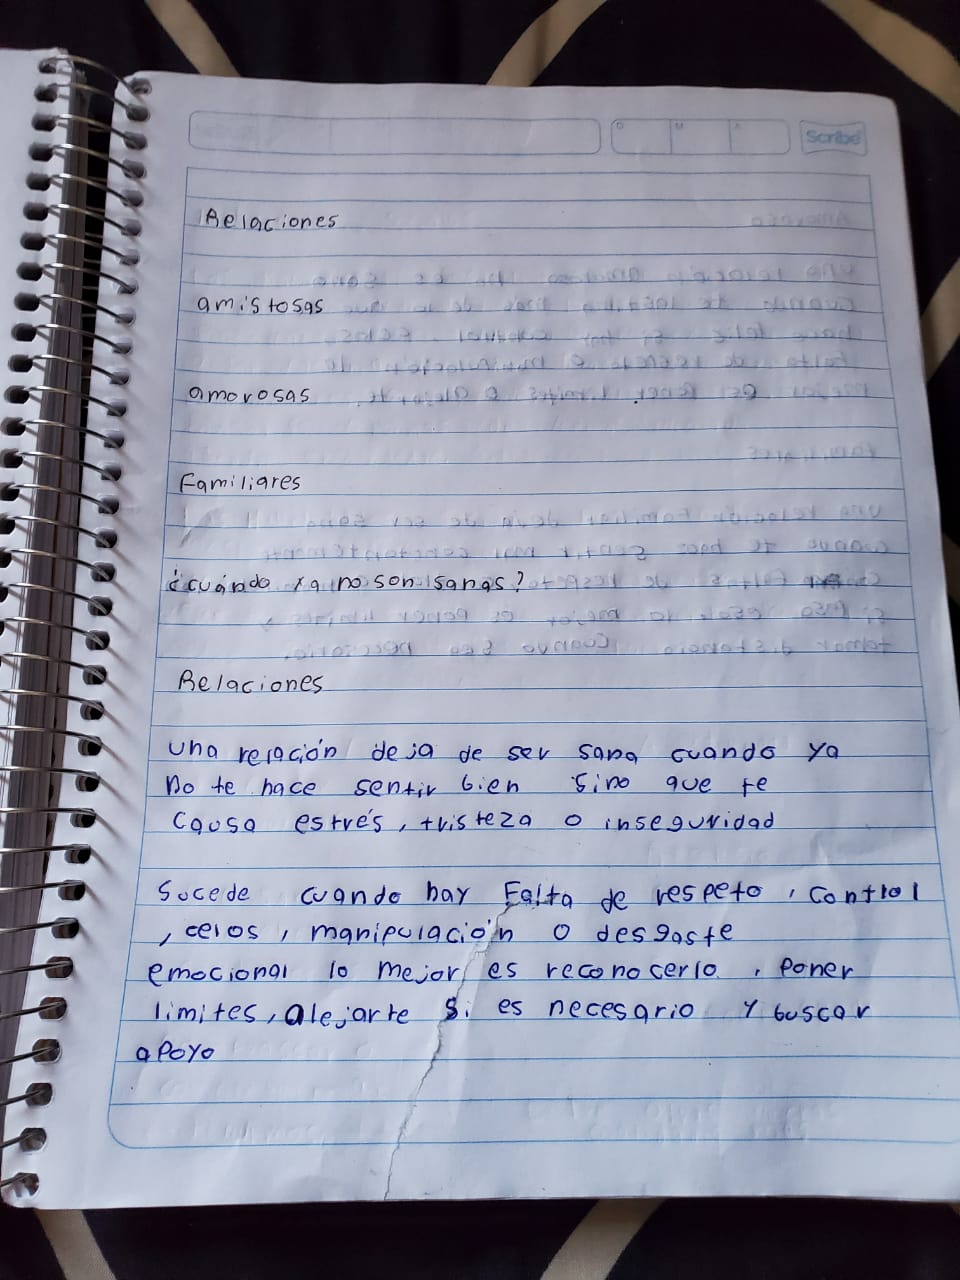 Scribe
D M A
Relaciones
amistosas
amorosas
Familiares
¿cuándo ya no son sanas?
Relaciones
una relación deja de ser sana cuando ya
no te hace sentir bien sino que te
causa estrés, tristeza o inseguridad
Sucede cuando hay Falta de respeto, control
, celos, manipulación o desgaste
emocional lo mejor es reconocerlo, poner
limites, alejarte si es necesario y buscar
apoyo